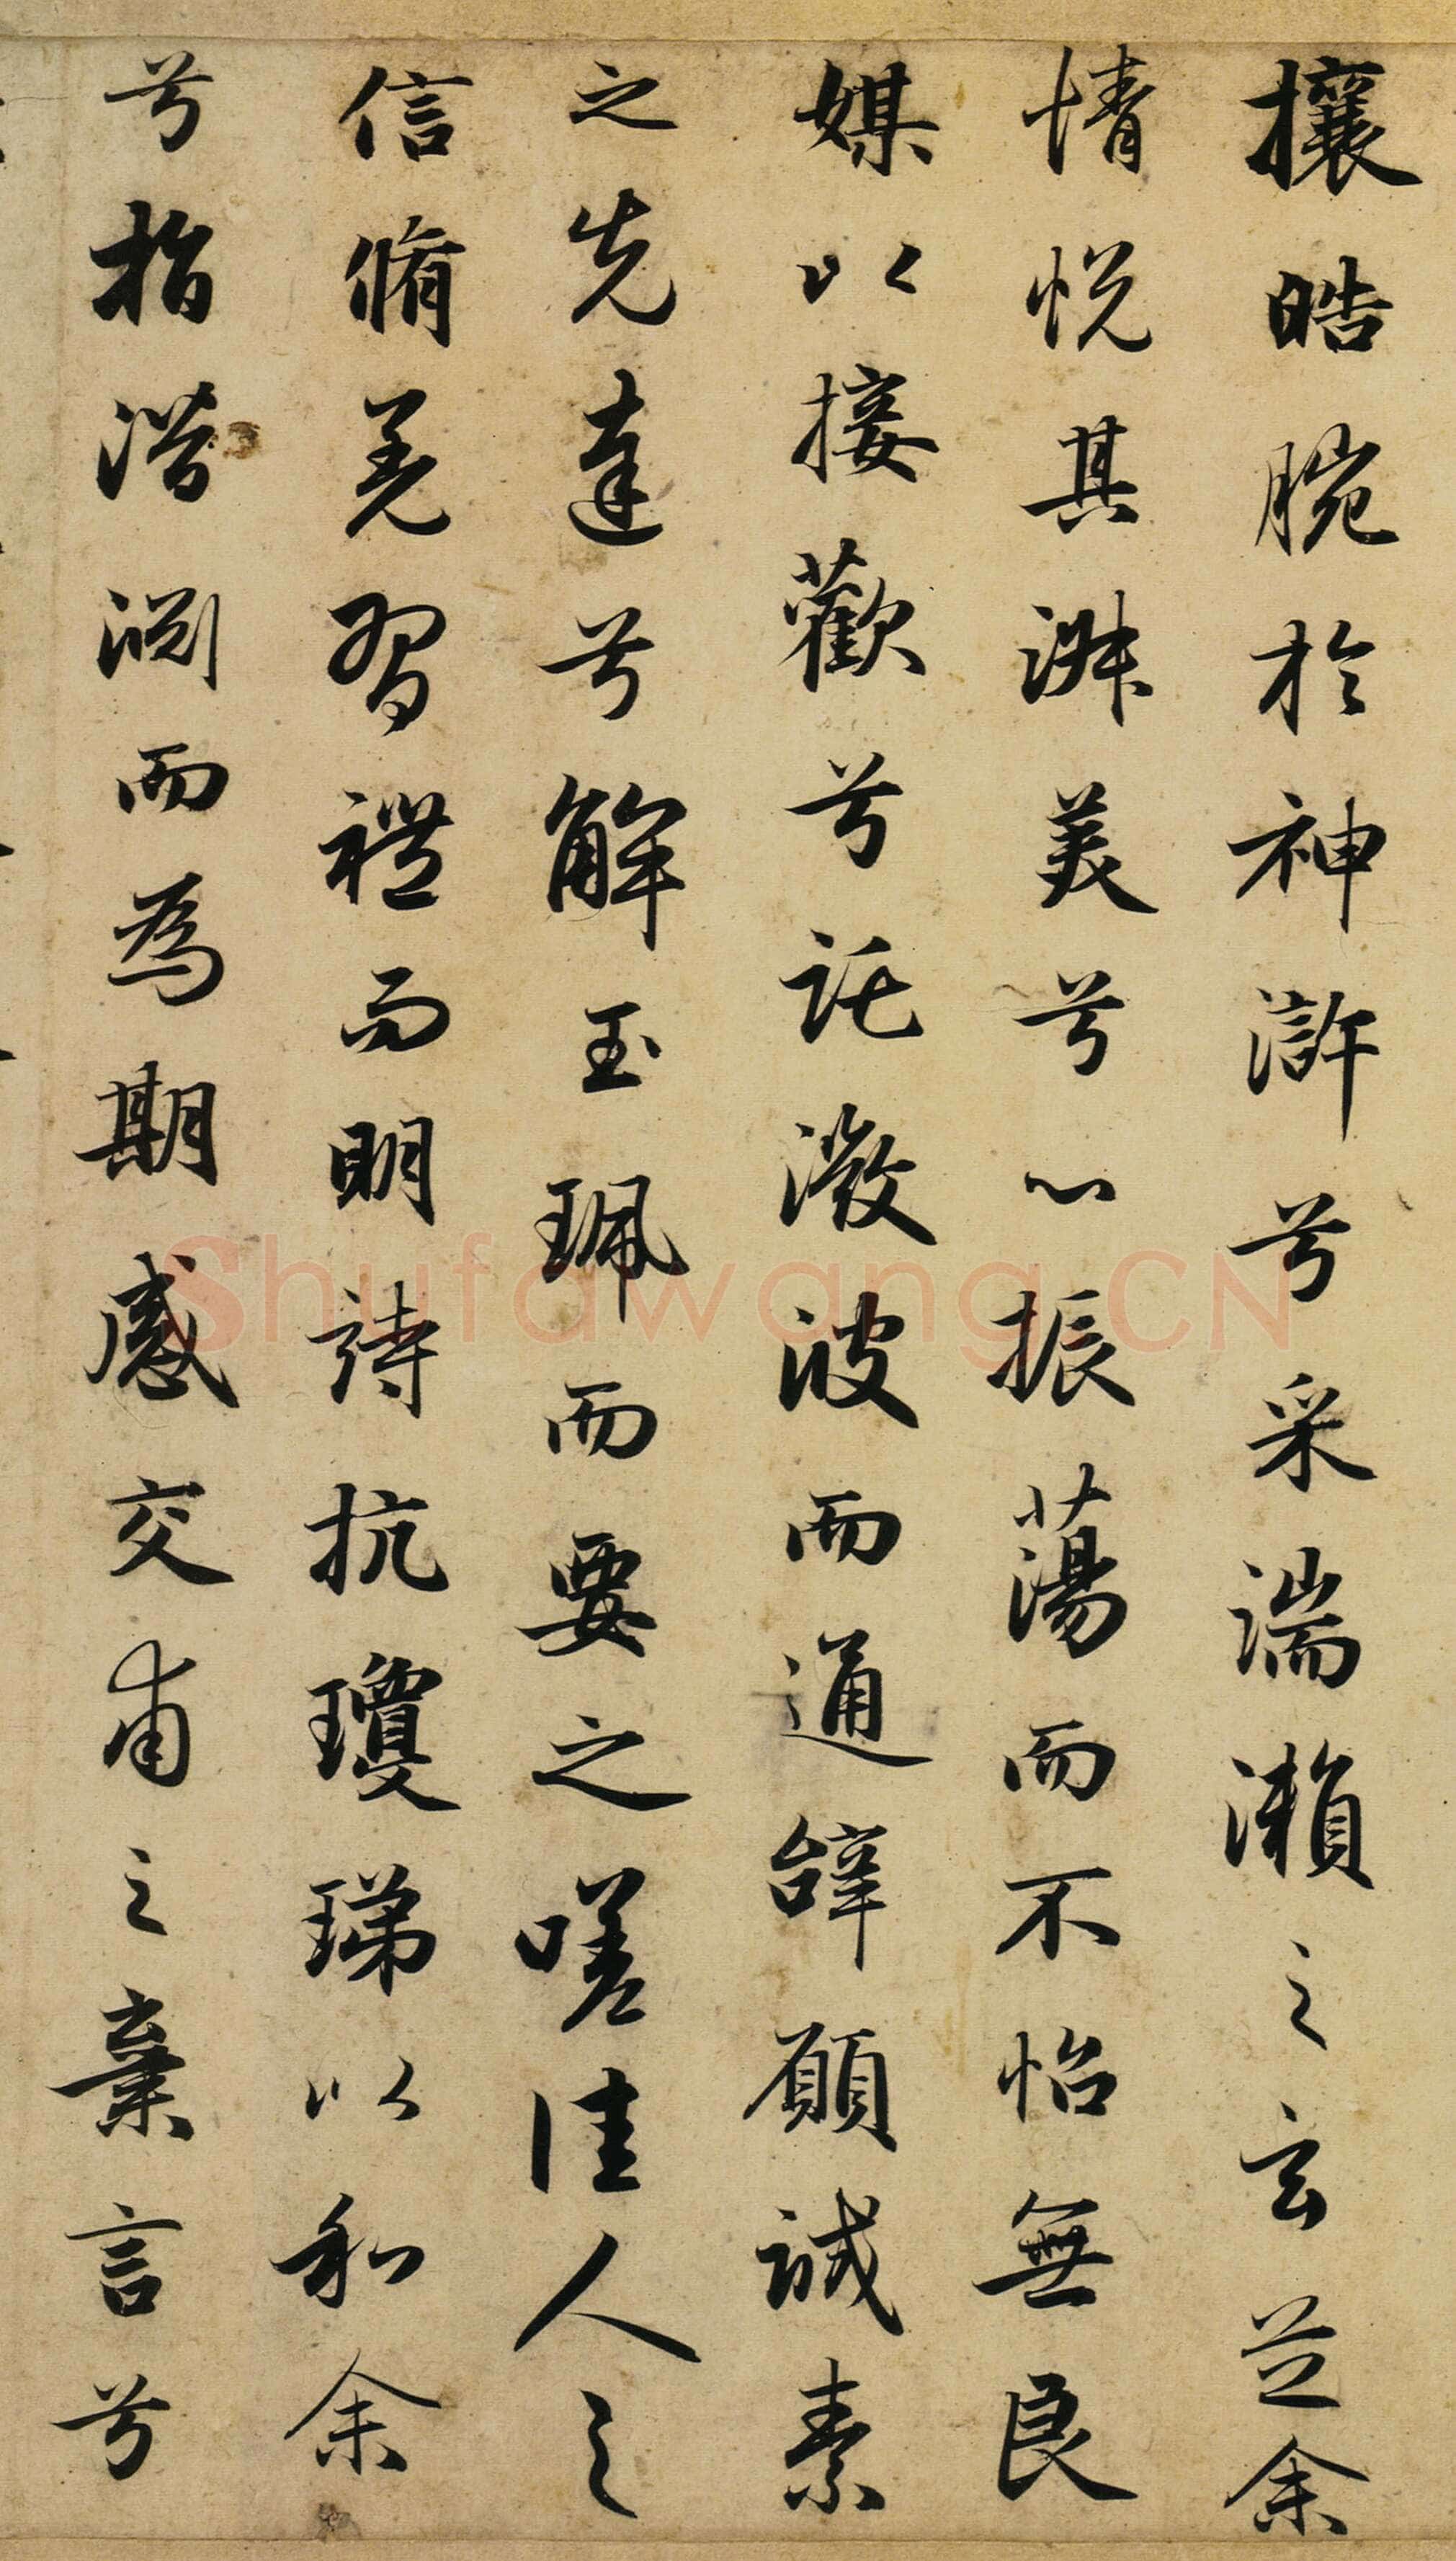 攘皓腕於神滸兮采湍瀨之玄芝余
情悅其淑美兮心振蕩而不怡無良
媒以接歡兮託微波而通辭願誠素
之先達兮解玉珮而要之嗟佳人之
信脩羌習禮而明詩抗瓊珶以和余
兮指潛淵而為期感交甫之棄言兮
Shufawang.CN